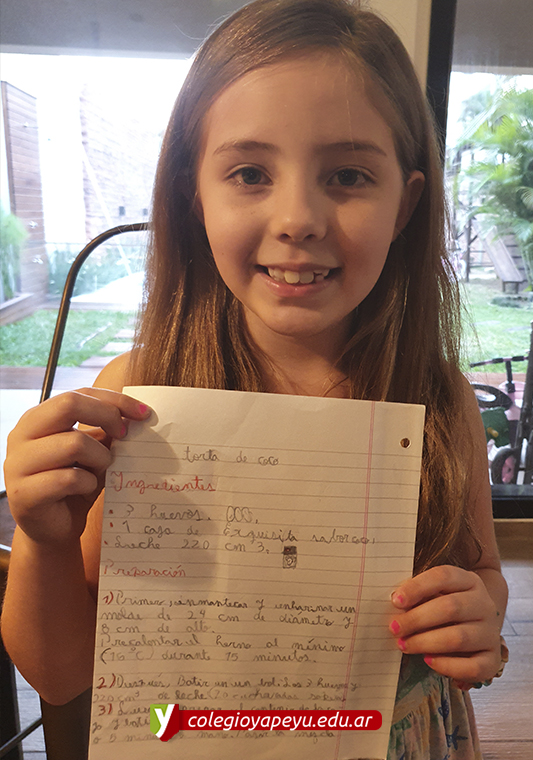 torta de coco
Ingredientes
• 3 huevos.
• 1 caja de Exquisita sabor coco.
• Leche 220 cm 3.
Preparación
1) Primer enmantecar y enharinar un
molde de 24 cm de diametro y
8 cm de alto.
Precalentar el horno al mínimo
(           °C) durante 15 minutos.
2) Despues, Batir en un bol los 3 huevos y
220 cm³ de leche (20 cucharadas
3)
o 5 minutos a mano.
colegioyapeyu.edu.ar